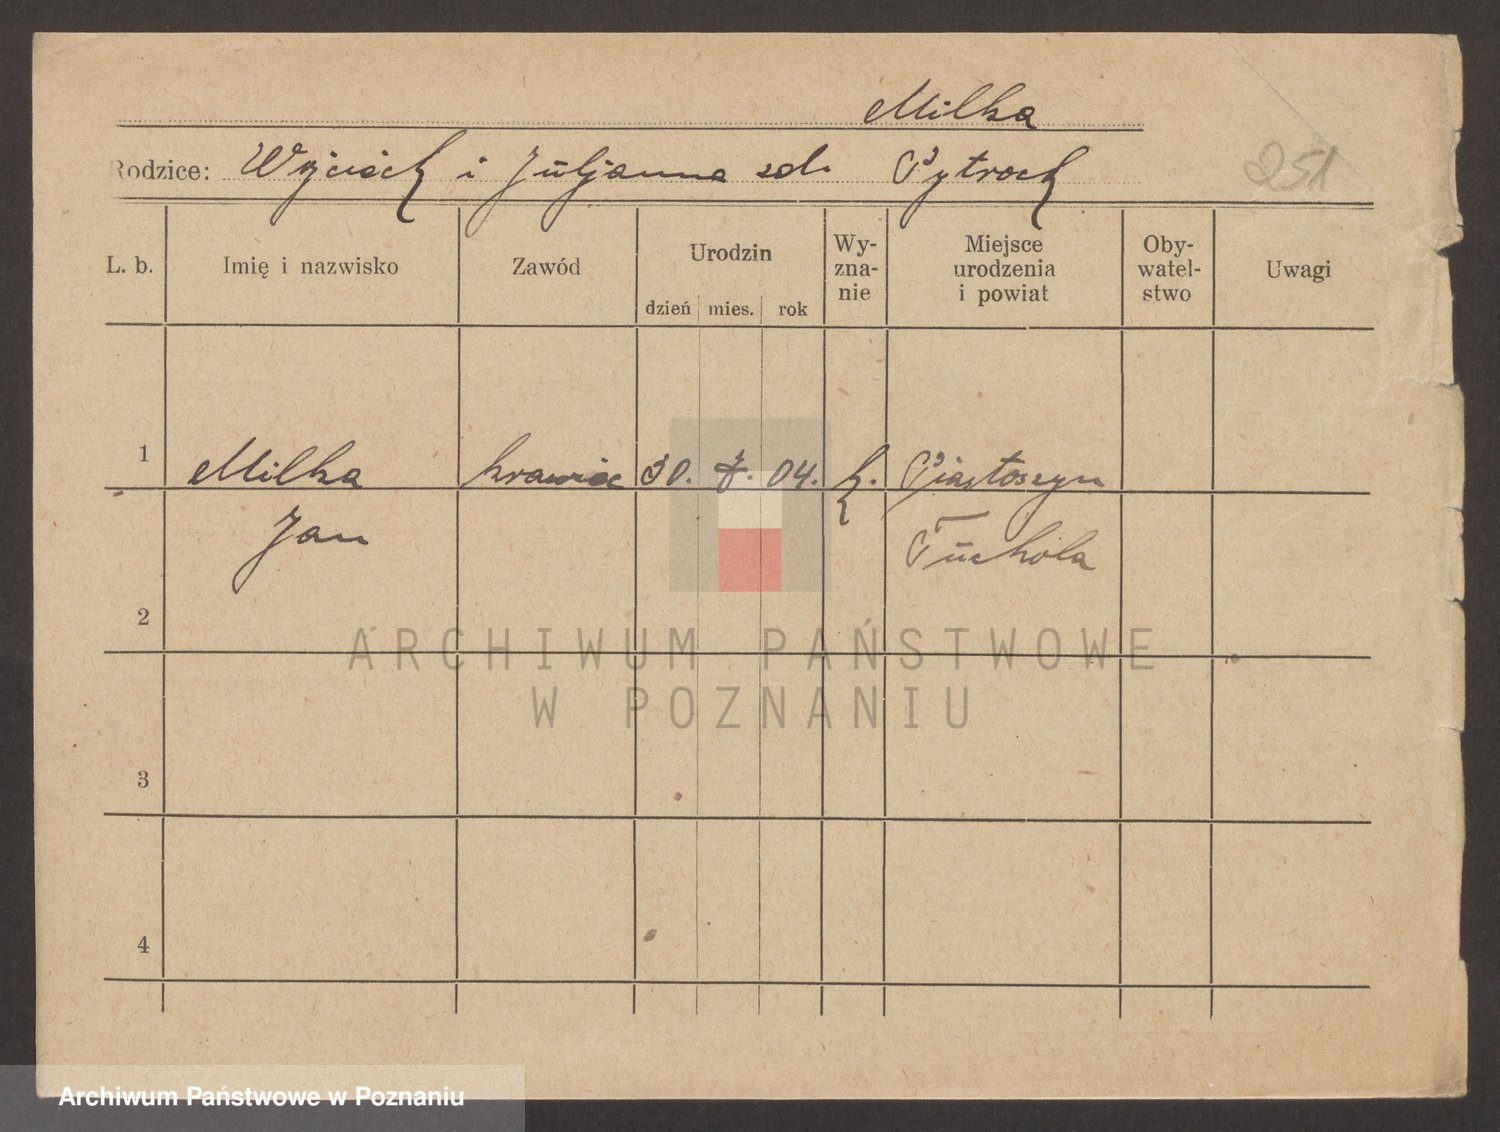 Milka
Rodzice: Wojciech i Juljanna zd. Pytroch
251
L. b.
Imię i nazwisko
Zawód
Urodzin
dzień mies. rok
Wy-
zna-
nie
Miejsce
urodzenia
i powiat
Oby-
watel-
stwo
Uwagi
1 Milka krawiec 30. 7. 04. k. Piastoszyn
Jan Tuchola
2
3
4
ARCHIWUM PAŃSTWOWE
W POZNANIU
Archiwum Państwowe w Poznaniu